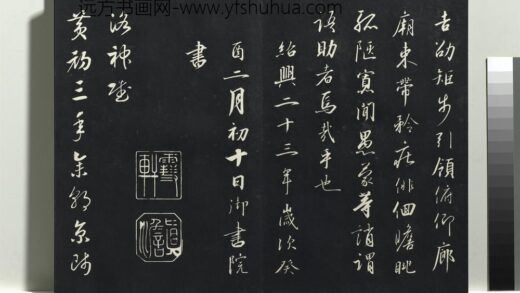 远方书画网-www.yfshuhua.com
吉劭矩步引領俯仰廊
廟束帶矜莊徘徊瞻眺
孤陋寡聞愚蒙等誚謂
語助者焉哉乎也
紹興二十三年歲次癸
酉二月初十日御書院
書
洛神賦
黃初三年余朝京師